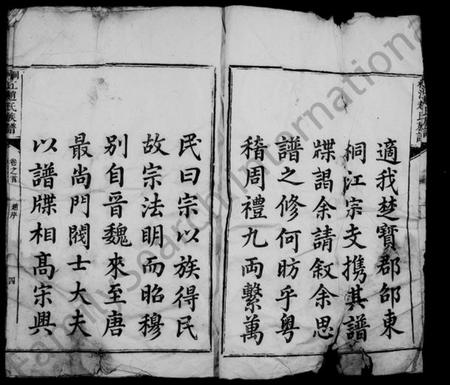 適我楚寶郡邵東
桐江宗支携其譜
牒謁余請叙余思
譜之修何昉乎粤
稽周禮九兩繫萬
民曰宗以族得民
故宗法明而昭穆
別自晉魏來至唐
最尚門閥士大夫
以譜牒相高宗興
桐江趙氏族譜
卷之首
總序
四